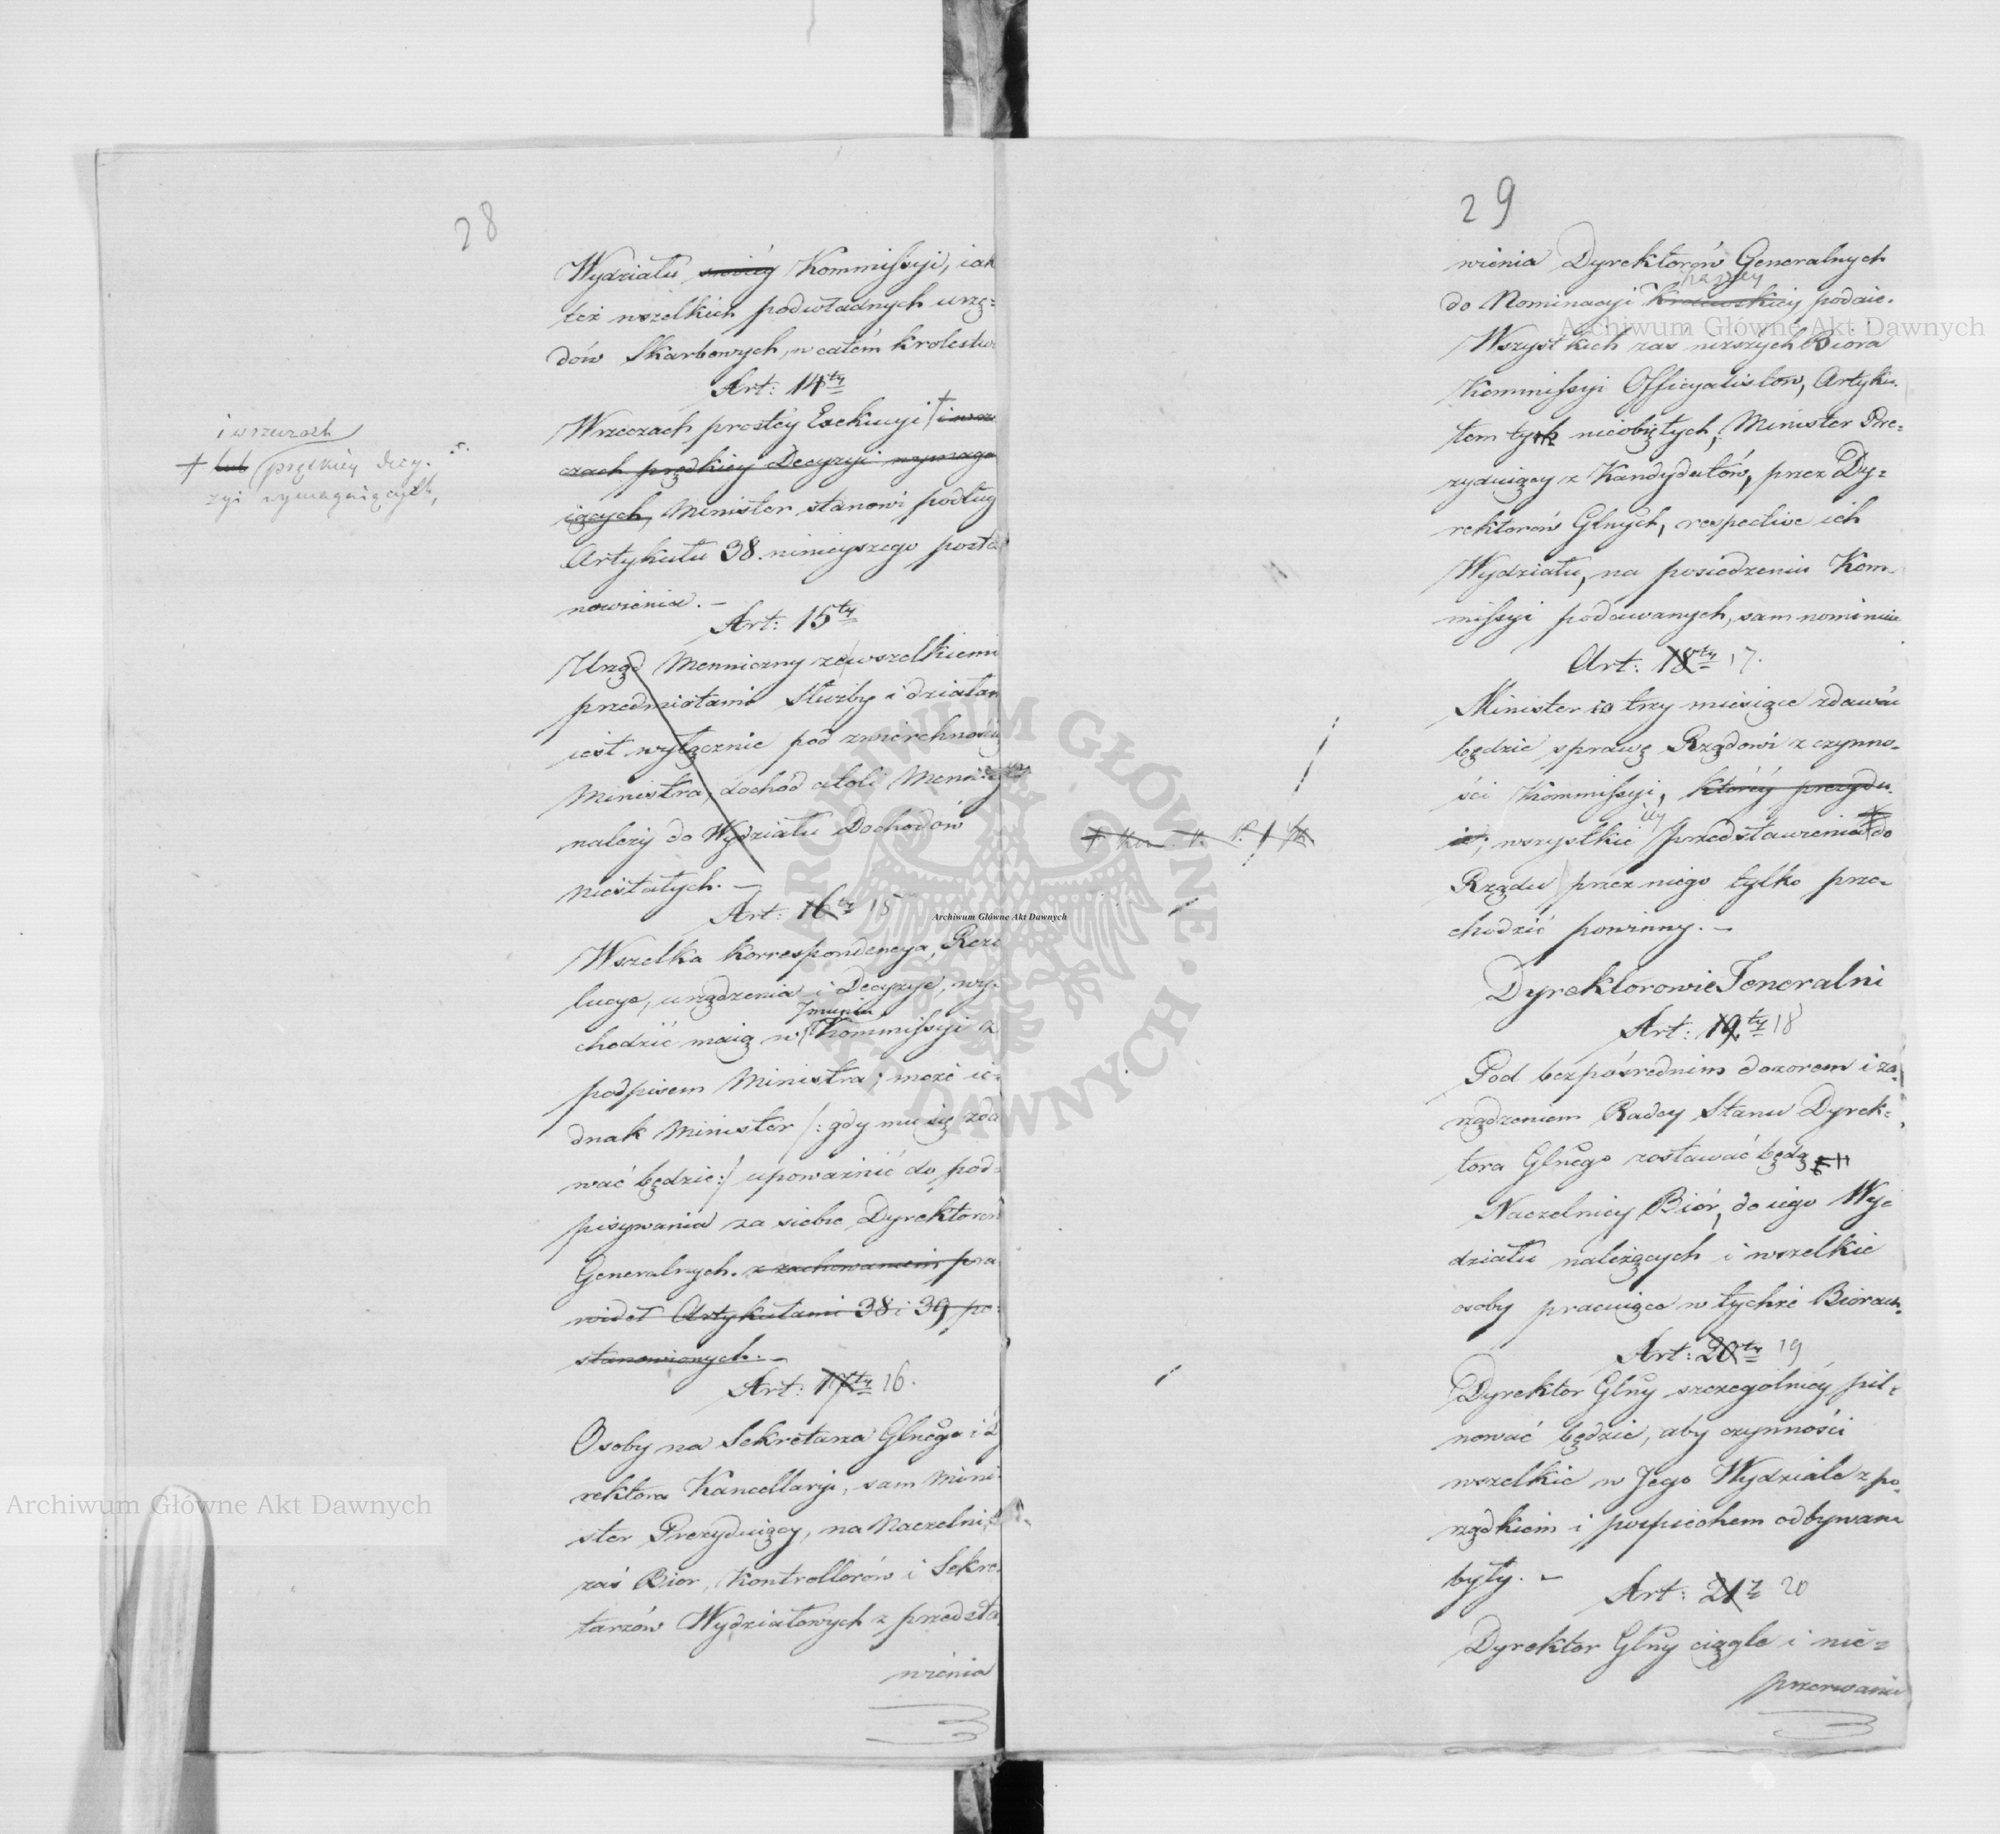 28
Wydziału swóiéy Kommissyi, iak
też wszelkich podwładnych urzę=
dów Skarbowych, w całém krolestw
Art: 14ty
Wrzeczach prostéy Exekucyi † i wrze
czach prędkiey Decyzyi wymaga
iących, Minister stanowi podług
Artykułu 38. ninieyszego posta
nowienia. –
i wrzeczach
† lub prędkiéy decy.
zyi wymagaiących,
Art: 15ty
Urząd Menniczny ze wszelkiemi
przedmiotami Służby i działań
iest wyłącznie pod zwierchności
Ministra, dochód atoli Mennicy
należy do Wydziału Dochodów
niestałych. –
Art: 16ty 15
Wszelka korrespondencya, Rezo
lucye, urządzenia i Decyzye, wy-
chodzić maią w Imieniu Kommissyi z
podpisem Ministra; może ie-
dnak Minister /: gdy mu się zda
wać będzie :/ upoważnić do pod-
pisywania za siebie Dyrektorów
Generalnych. z zachowaniem pra
wideł Artykułami 38 i 39 po-
stanowionych. –
Art: 17ty 16.
Osoby na Sekretarza Głnego i D
rektora Kancellaryi, sam Mini-
ster Prezyduiący, na Naczelni
zaś Bior, Kontrollorów i Sekre
tarzów Wydziałowych z przedsta
wienia
29
wienia Dyrektorów Generalnych
do Nominacyi Naszey Krolewskiey podaie.
Wszystkich zas niższych Biora
Kommissyi Officyalistow, Artyku-
łem tych nieobiętych, Minister Pre-
zyduiący z Kandydatów, przez Dy-
rektorów Głnych, respective ich
Wydziału, na posiedzeniu Kom-
missyi podawanych, sam nominuie
Art: 18ty 17.
Minister co trzy miesiące zdawać
będzie sprawę Rządowi z czynno-
ści Kommissyi, któréy prezydu-
ie; wszystkie iéy przedstawienia do
Rządu przez niego tylko prze-
chodzić powinny. –
Dyrektorowie Jeneralni
Art: 19ty 18
Pod bezpośrednim dozorem i za-
rządzeniem Radcy Stanu Dyrek-
tora Głnego zostawać będą
Naczelnicy Biór, do iego Wy-
działu należących i wszelkie
osoby pracuiące w tychże Biorach.
Art: 20ty 19
Dyrektor Głny szczegolniéy pil-
nować będzie, aby czynności
wszelkie w Jego Wydziale z po-
rządkiem i pospiechem odbywane
były. –
Art: 21 20
Dyrektor Głny ciągle i nie-
przerwanie